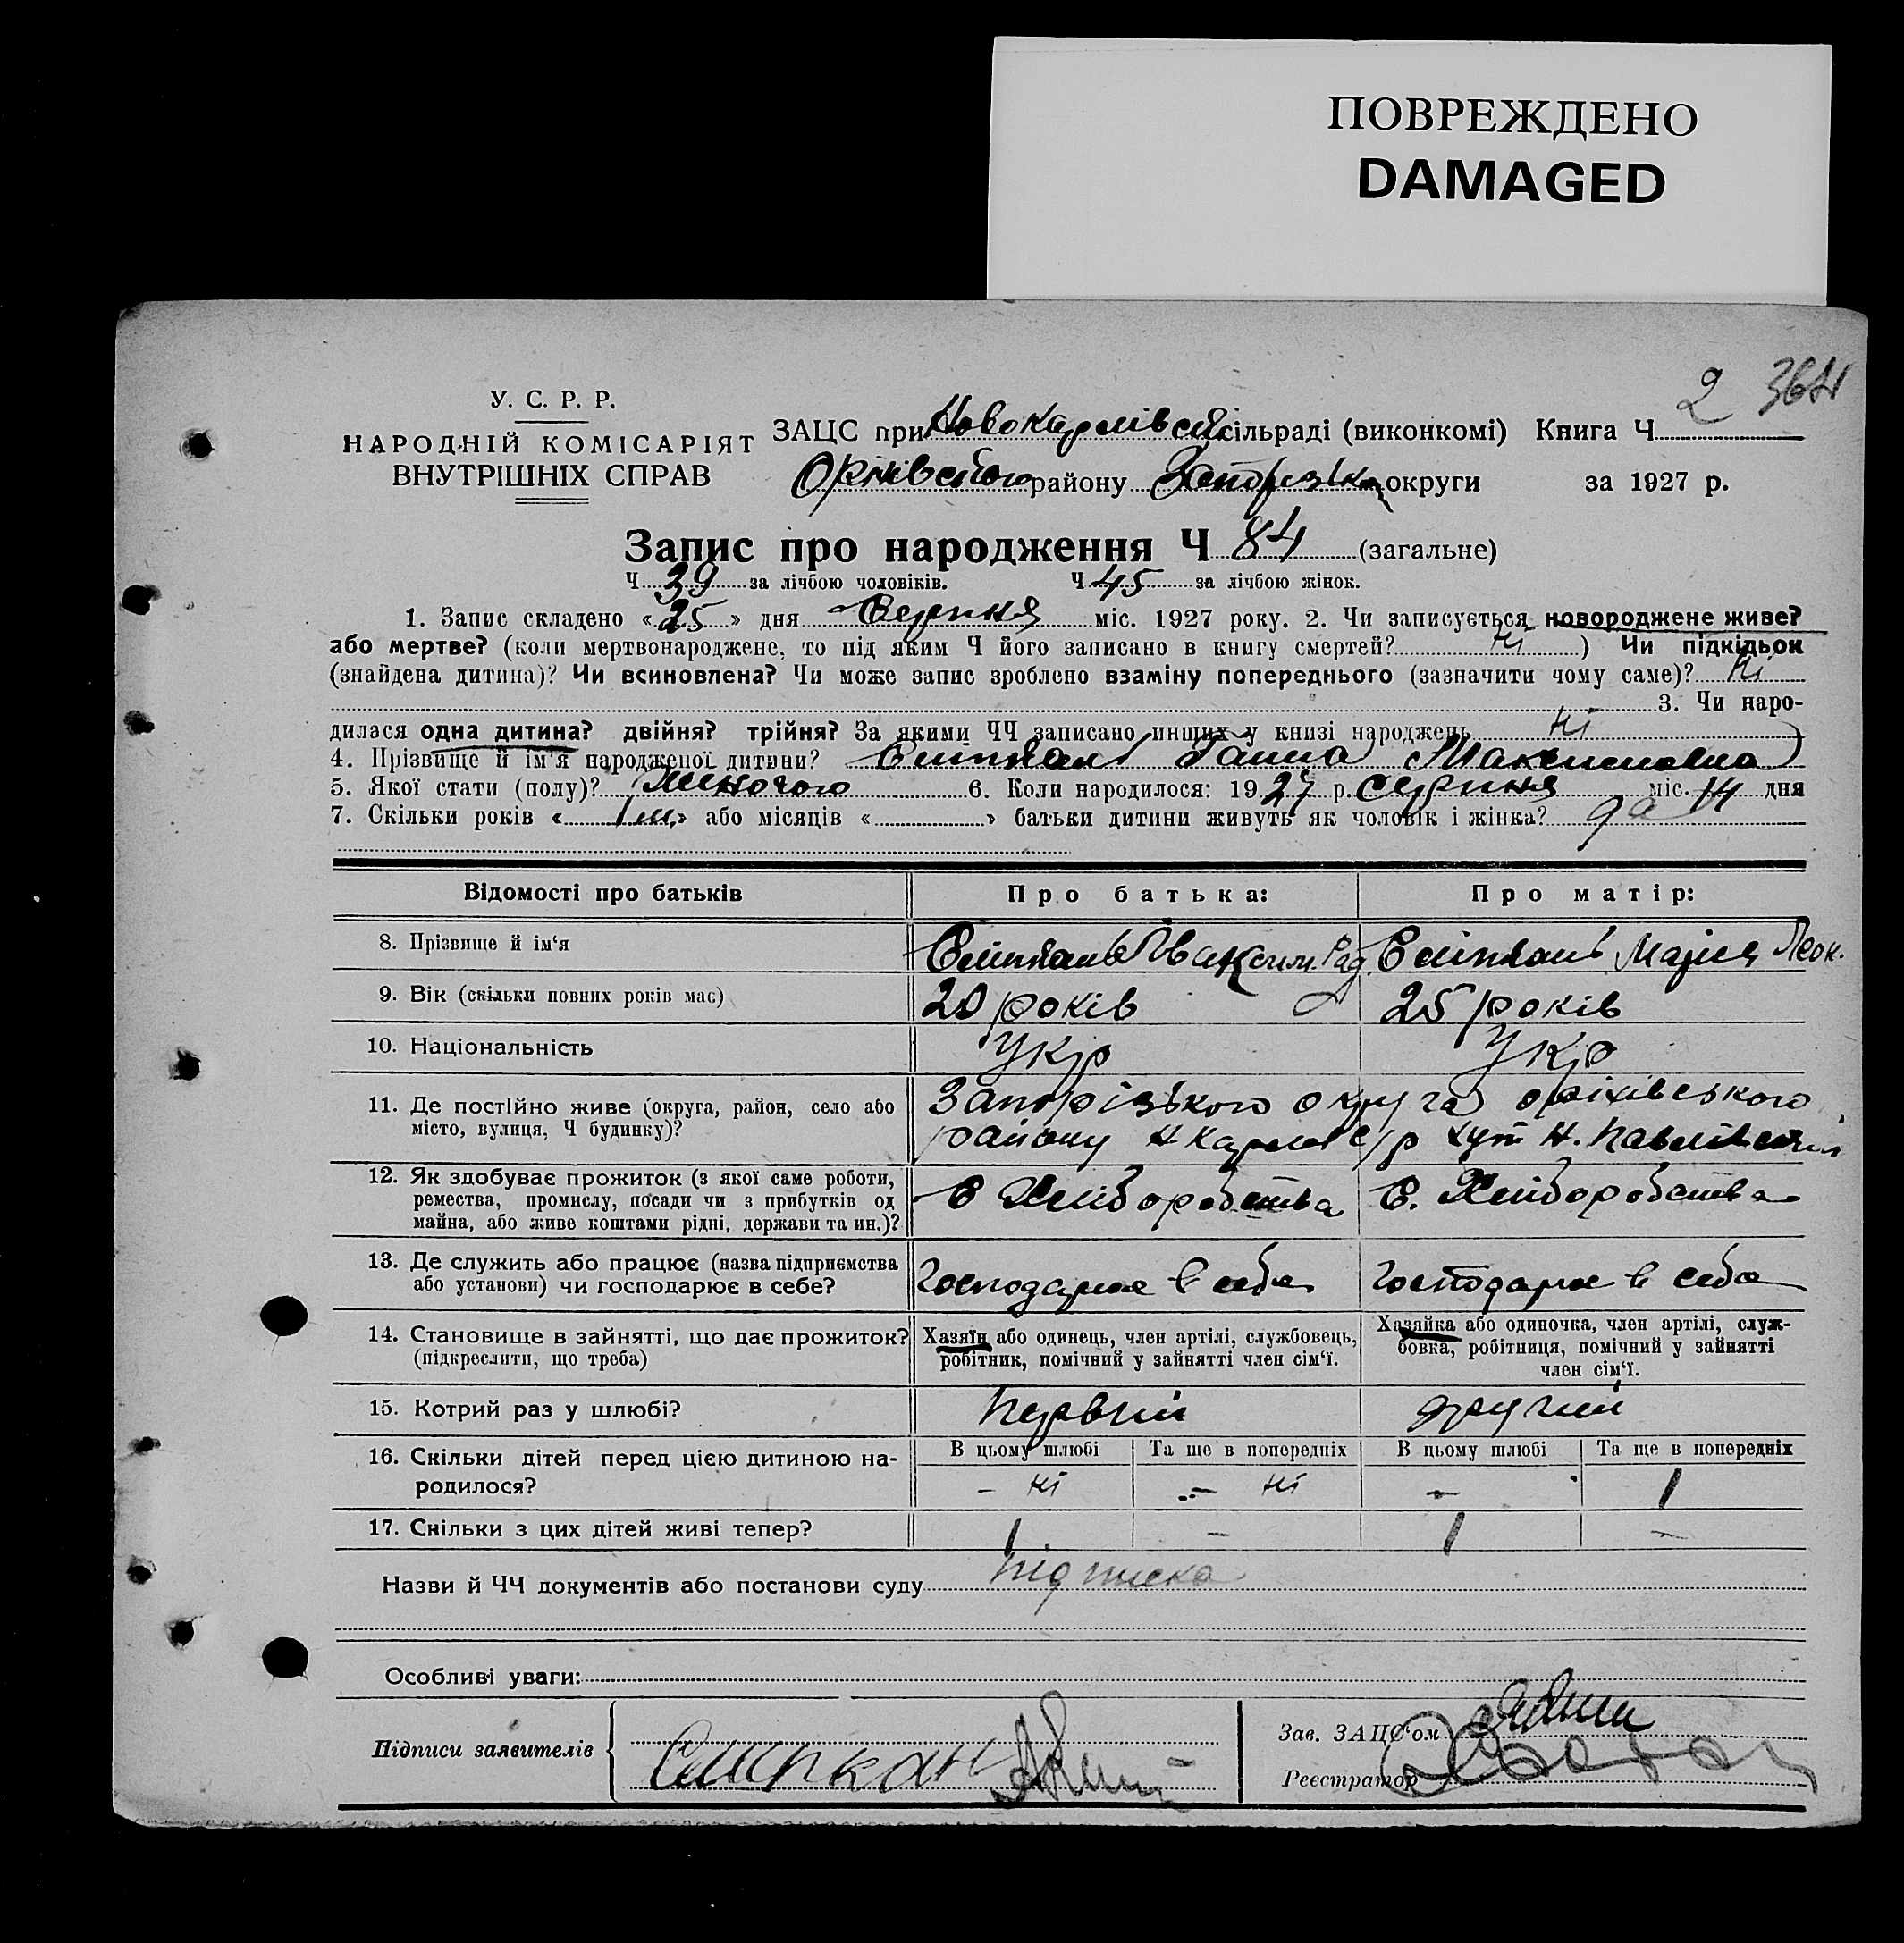 ПОВРЕЖДЕНО
DAMAGED
2 364
У. С. Р. Р.
НАРОДНІЙ КОМІСАРІЯТ
ВНУТРІШНІХ СПРАВ
ЗАЦС при Новокарлівській сільраді (виконкомі) Книга Ч
району округи за 1927 р.
Запис про народження Ч 84 (загальне)
Ч 39 за лічбою чоловіків. Ч 45 за лічбою жінок.
1. Запис складено «25» дня Серпня міс. 1927 року. 2. Чи записується новороджене живе?
або мертве? (коли мертвонароджене, то під яким Ч його записано в книгу смертей? ні ) Чи підкідьок
(знайдена дитина)? Чи всиновлена? Чи може запис зроблено взаміну попереднього (зазначити чому саме)? ні
3. Чи наро-
дилася одна дитина? двійня? трійня? За якими ЧЧ записано инших у книзі народжень ні
4. Прізвище й ім'я народженої дитини? Ганна Максимовна
5. Якої стати (полу)? Жиночого 6. Коли народилося: 1927 р. серпня міс. 14 дня
7. Скільки років « » або місяців « » батьки дитини живуть як чоловік і жінка? да
Відомості про батьків Про батька: Про матір:
8. Прізвище й ім'я Максим. Рад. Марія Леон.
9. Вік (скільки повних років має) 20 років 25 років
10. Національність Укр Укр
11. Де постійно живе (округа, район, село або місто, вулиця, Ч будинку)? Запорізького округа оріхівського
району Н Карлов с/р хут Н. Павлівський
12. Як здобуває прожиток (з якої саме роботи, ремества, промислу, посади чи з прибутків од майна, або живе коштами рідні, держави та ин.)? С Хліборобства С. Хліборобства
13. Де служить або працює (назва підприємства або установи) чи господарює в себе? Господарює в себе Господарює в себе
14. Становище в зайнятті, що дає прожиток? (підкреслити, що треба) Хазяїн або одинець, член артілі, службовець, робітник, помічний у зайнятті член сім'ї. Хазяйка або одиночка, член артілі, служ-
бовка, робітниця, помічний у зайнятті
член сім'ї.
15. Котрий раз у шлюбі? первий другий
В цьому шлюбі Та ще в попередніх В цьому шлюбі Та ще в попередніх
16. Скільки дітей перед цією дитиною на-
родилося? – ні – ні – 1
17. Скільки з цих дітей живі тепер? 1 – 1 –
Назви й ЧЧ документів або постанови суду підписка
Особливі уваги:
Підписи заявителів
Зав. ЗАЦС'ом
Реєстратор